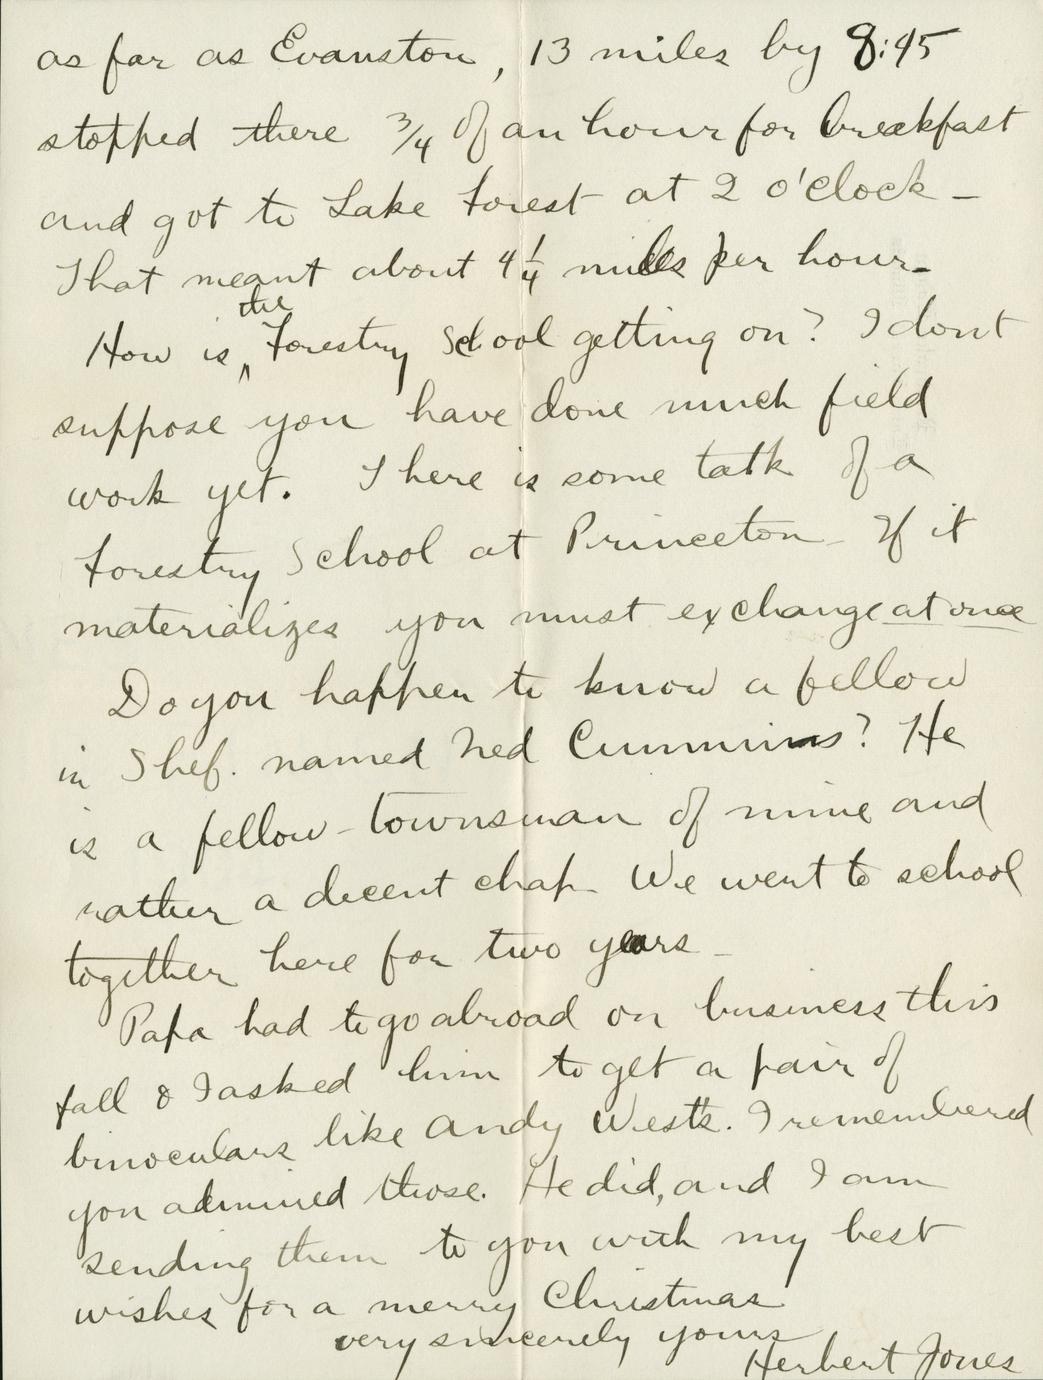 as far as Evanston, 13 miles by 8:45
stopped there 3/4 of an hour for breakfast
and got to Lake Forest at 2 o'clock –
That meant about 4 1/4 miles per hour –
the
How is ^ Forestry School getting on? I dont
suppose you have done much field
work yet. There is some talk of a
Forestry School at Princeton – If it
materializes you must exchange at once
Do you happen to know a fellow
in Shef. named Ned Cummins? He
is a fellow-townsman of mine and
rather a decent chap – We went to school
together here for two years –
Papa had to go abroad on business this
fall & I asked him to get a pair of
binoculars like Andy West's. I remembered
you admired those. He did, and I am
sending them to you with my best
wishes for a merry Christmas
very sincerely yours
Herbert Jones